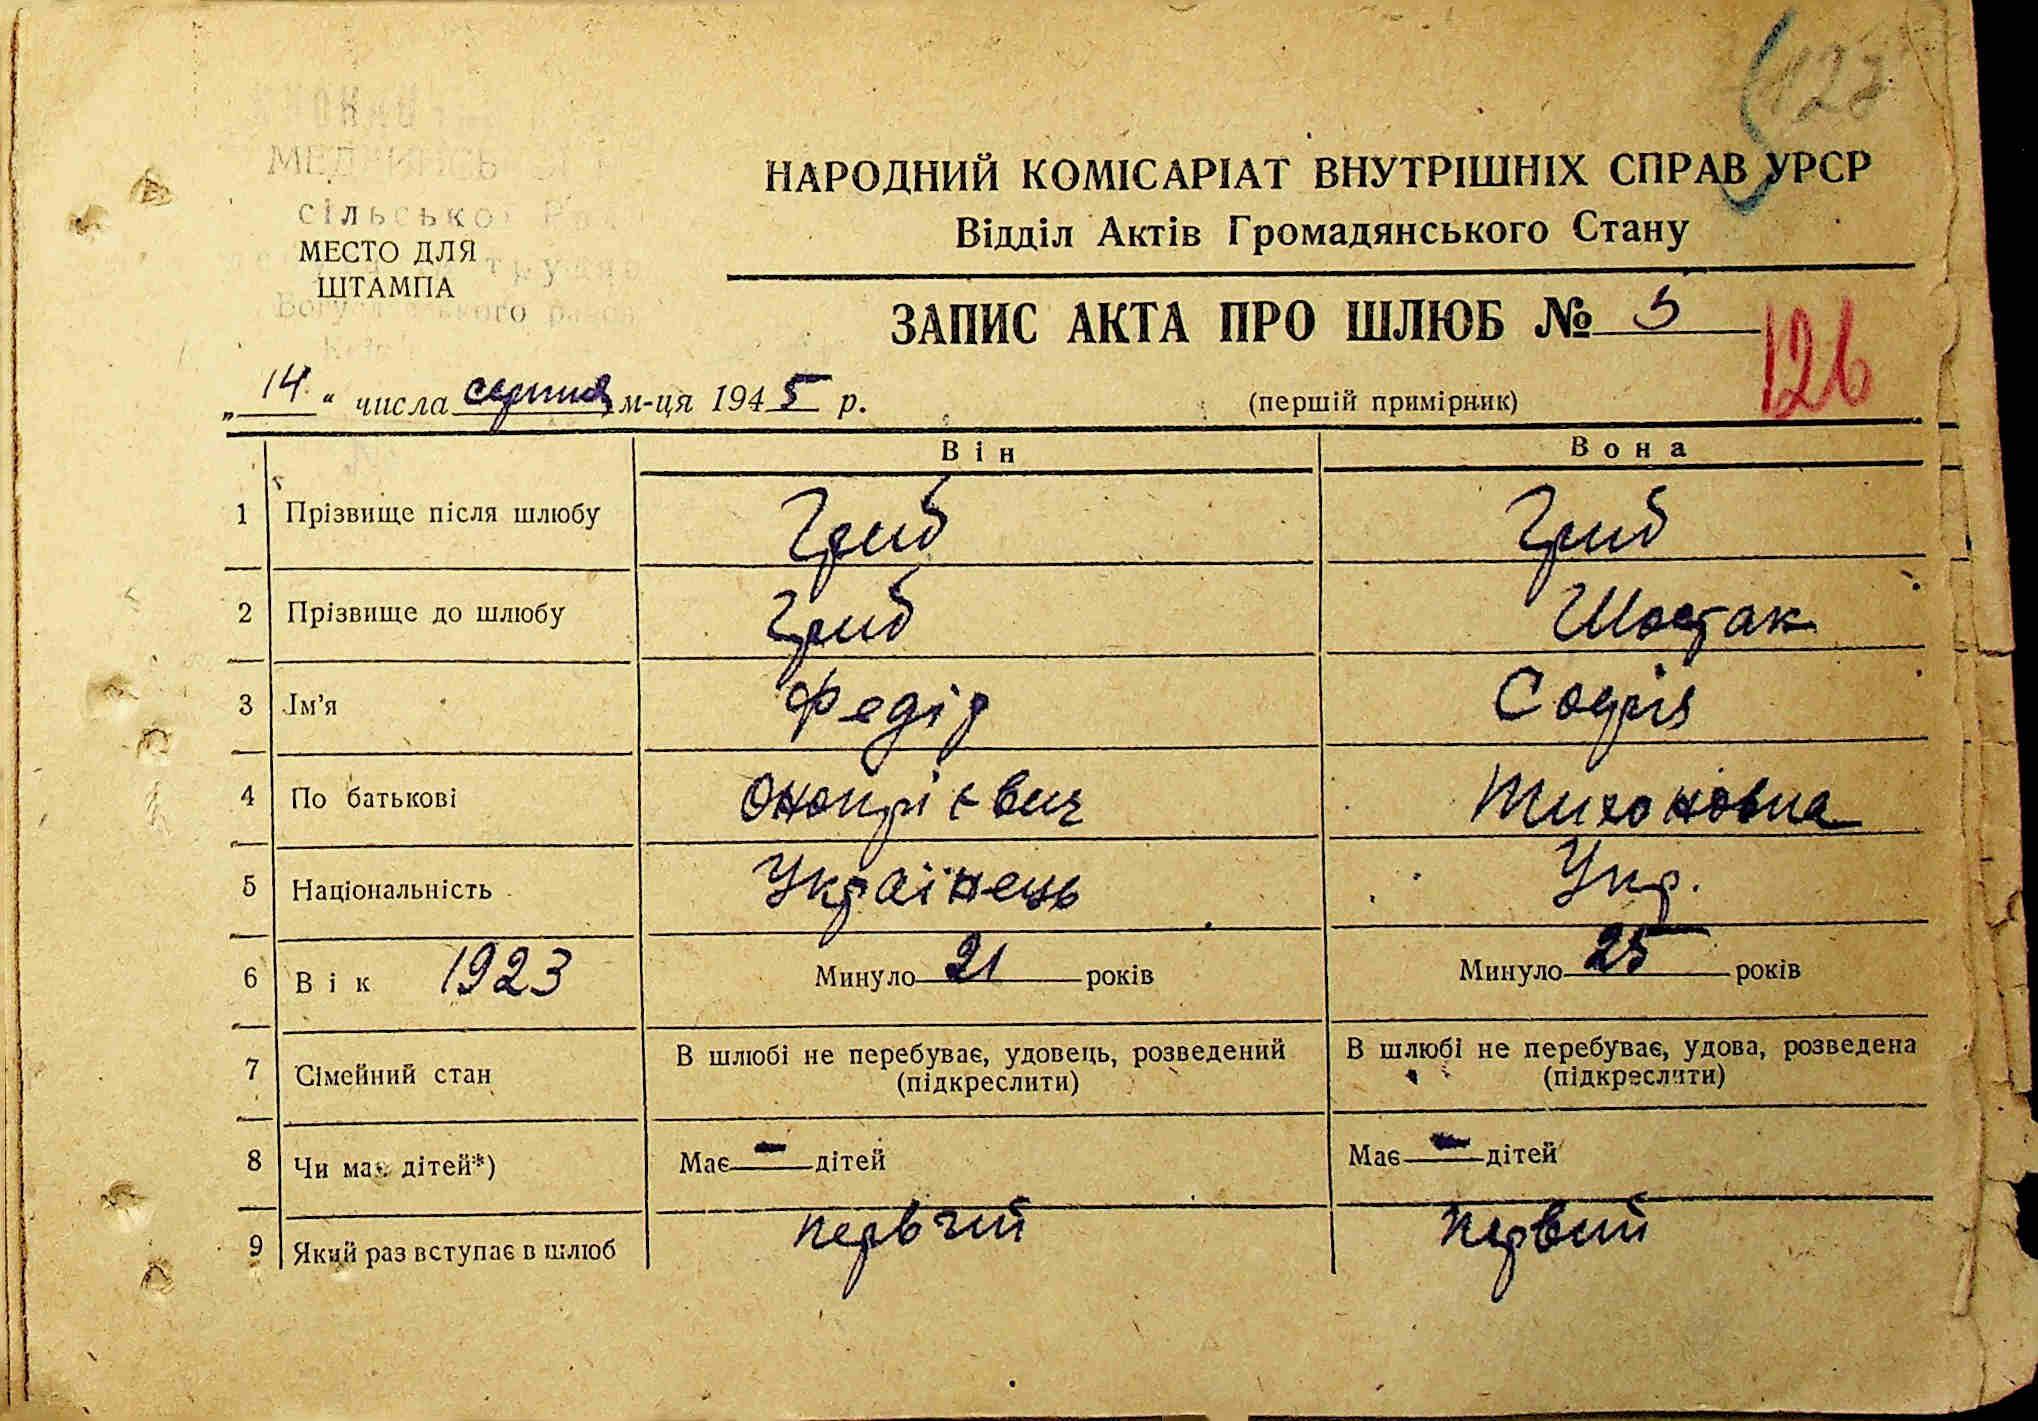 сільської
МЕСТО ДЛЯ
ШТАМПА
НАРОДНИЙ КОМІСАРІАТ ВНУТРІШНІХ СПРАВ УРСР
Відділ Актів Громадянського Стану
ЗАПИС АКТА ПРО ШЛЮБ № 5
126
„14“ числа серпня м-ця 1945 р.
(першій примірник)
Він Вона
1 Прізвище після шлюбу Гриб Гриб
2 Прізвище до шлюбу Гриб Шостак
3 Ім'я Федір Софія
4 По батькові Онопрієвич Тихоновна
5 Національність Українець Укр.
6 Вік 1923 Минуло 21 років Минуло 25 років
7 Сімейний стан В шлюбі не перебуває, удовець, розведений (підкреслити) В шлюбі не перебуває, удова, розведена (підкреслити)
8 Чи має дітей*) Має — дітей Має — дітей
9 Який раз вступає в шлюб первий первий